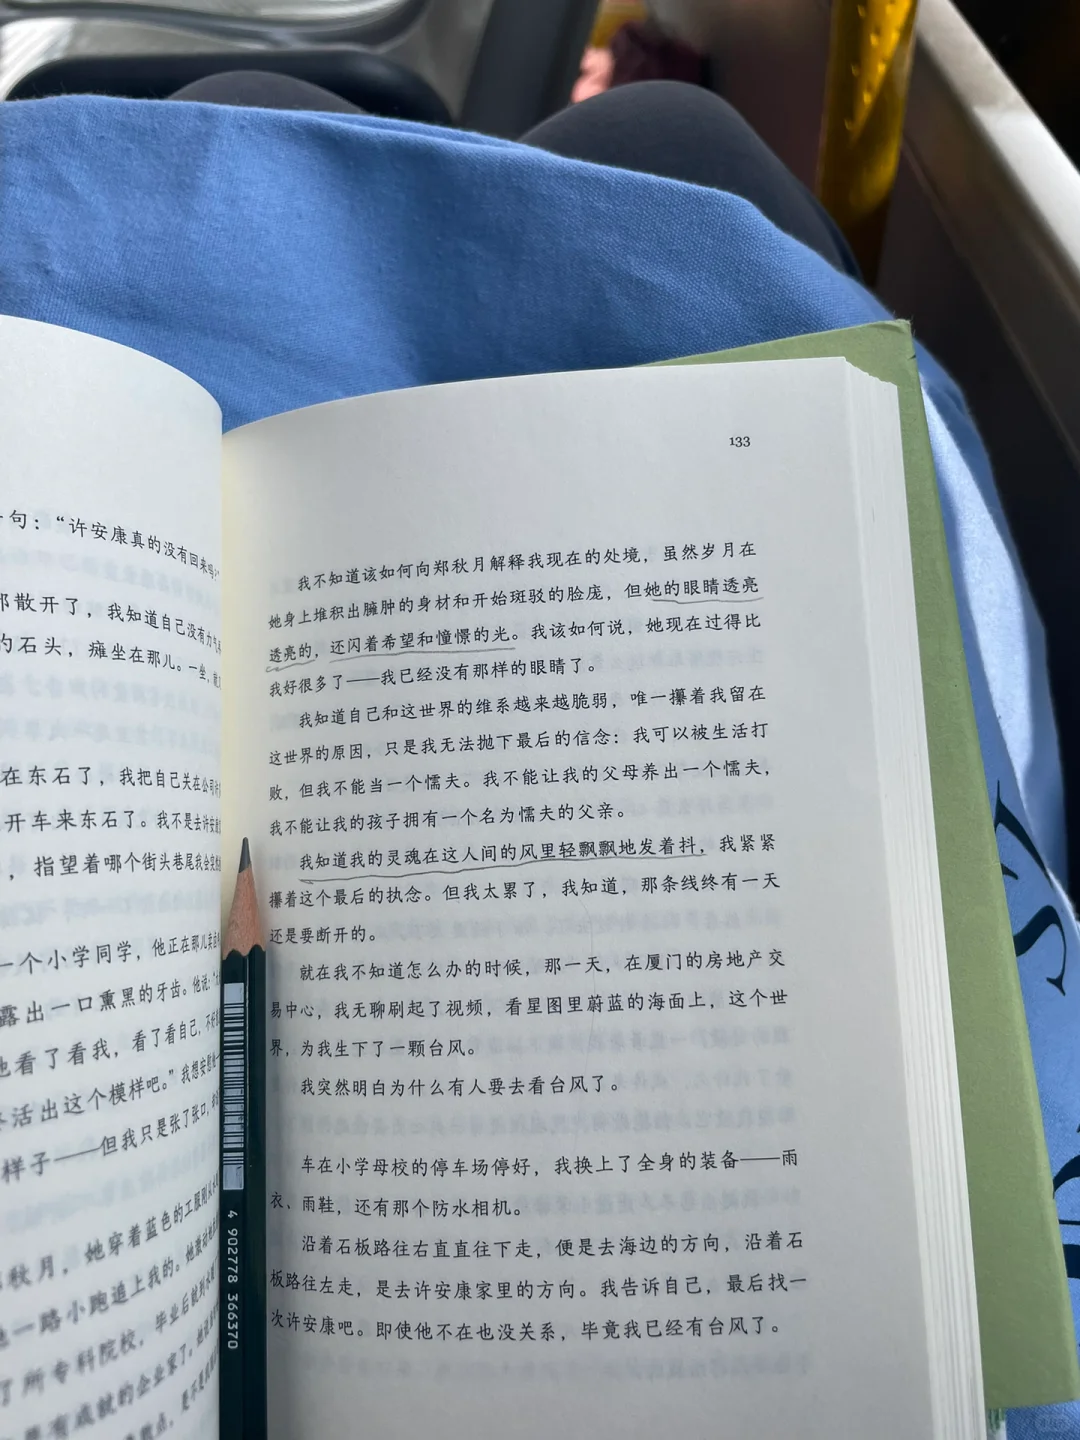 句：“许安康真的没有回来吗？”
散开了，我知道自己没有力气
的石头，瘫坐在那儿。一坐，
在东石了，我把自己关在公司
开车来东石了。我不是去许安康
，指望着哪个街头巷尾我会突然
一个小学同学，他正在那儿卖
露出一口熏黑的牙齿。他说：
他看了看我，看了看自己，不
活出这个模样吧。”我想安慰他
样子——但我只是张了张口，
秋月，她穿着蓝色的工服刚从
一路小跑追上我的。她激动地
了所专科院校，毕业后就到
是有成就的企业家了。
133
我不知道该如何向郑秋月解释我现在的处境，虽然岁月在
她身上堆积出臃肿的身材和开始斑驳的脸庞，但她的眼睛透亮
透亮的，还闪着希望和憧憬的光。我该如何说，她现在过得比
我好很多了——我已经没有那样的眼睛了。
我知道自己和这世界的维系越来越脆弱，唯一攥着我留在
这世界的原因，只是我无法抛下最后的信念：我可以被生活打
败，但我不能当一个懦夫。我不能让我的父母养出一个懦夫，
我不能让我的孩子拥有一个名为懦夫的父亲。
我知道我的灵魂在这人间的风里轻飘飘地发着抖，我紧紧
攥着这个最后的执念。但我太累了，我知道，那条线终有一天
还是要断开的。
就在我不知道怎么办的时候，那一天，在厦门的房地产交
易中心，我无聊刷起了视频，看星图里蔚蓝的海面上，这个世
界，为我生下了一颗台风。
我突然明白为什么有人要去看台风了。
车在小学母校的停车场停好，我换上了全身的装备——雨
衣、雨鞋，还有那个防水相机。
沿着石板路往右直直往下走，便是去海边的方向，沿着石
板路往左走，是去许安康家里的方向。我告诉自己，最后找一
次许安康吧。即使他不在也没关系，毕竟我已经有台风了。
4 902778 366370